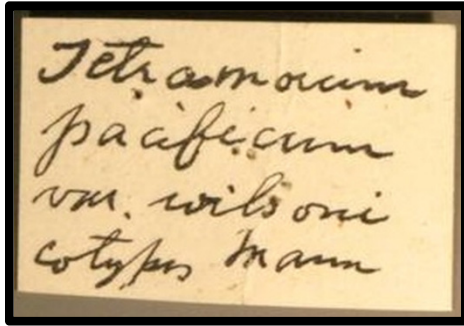 Tetramorium
pacificum
var. wilsoni
cotypes Mann